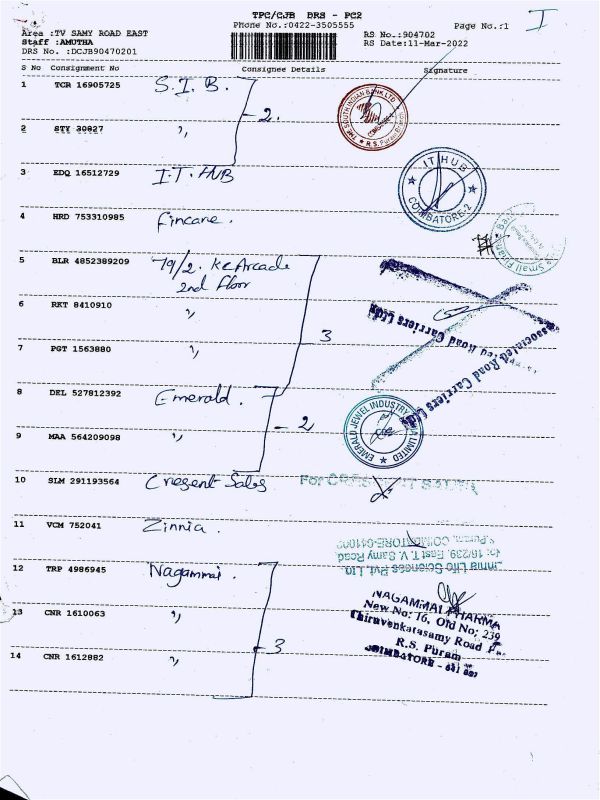 TPC/CJB DRS - PC2
Phone No.:0422-3505555
Page No.:1
I
Area :TV SAMY ROAD EAST
Staff :AMUTHA
DRS No. :DCJB90470201
RS No.:904702
RS Date:11-Mar-2022
S No Consignment No Consignee Details Signature
1 TCR 16905725 S.I.B.
2.
THE SOUTH INDIAN BANK LTD
R.S. Puram Branch
2 STY 30827 "
3 EDQ 16512729 I.T. HUB
IT HUB
COIMBATORE-2
4 HRD 753310985 Fincare.
Small Finan
5 BLR 4852389209 79/2. KC Arcade
2nd Floor
6 RKT 8410910 "
3
Associated Road Carriers Ltd
7 PGT 1563880 "
8 DEL 527812392 Emerald.
2
EMERALD JEWEL INDUSTRY LIMITED
9 MAA 564209098 "
10 SLM 291193564 Cresent Sales
For
11 VCM 752041 Zinnia.
S.Puram, COIMBATORE-641002
No: 16/239, East T. V. Samy Road
Zinnia Life Sciences Pvt. Ltd
12 TRP 4986945 Nagammai.
NAGAMMAI PHARMA
New No: 16, Old No: 239
Thiruvenkatasamy Road
R.S. Puram
COIMBATORE - 641 002
13 CNR 1610063 "
3
14 CNR 1612882 "